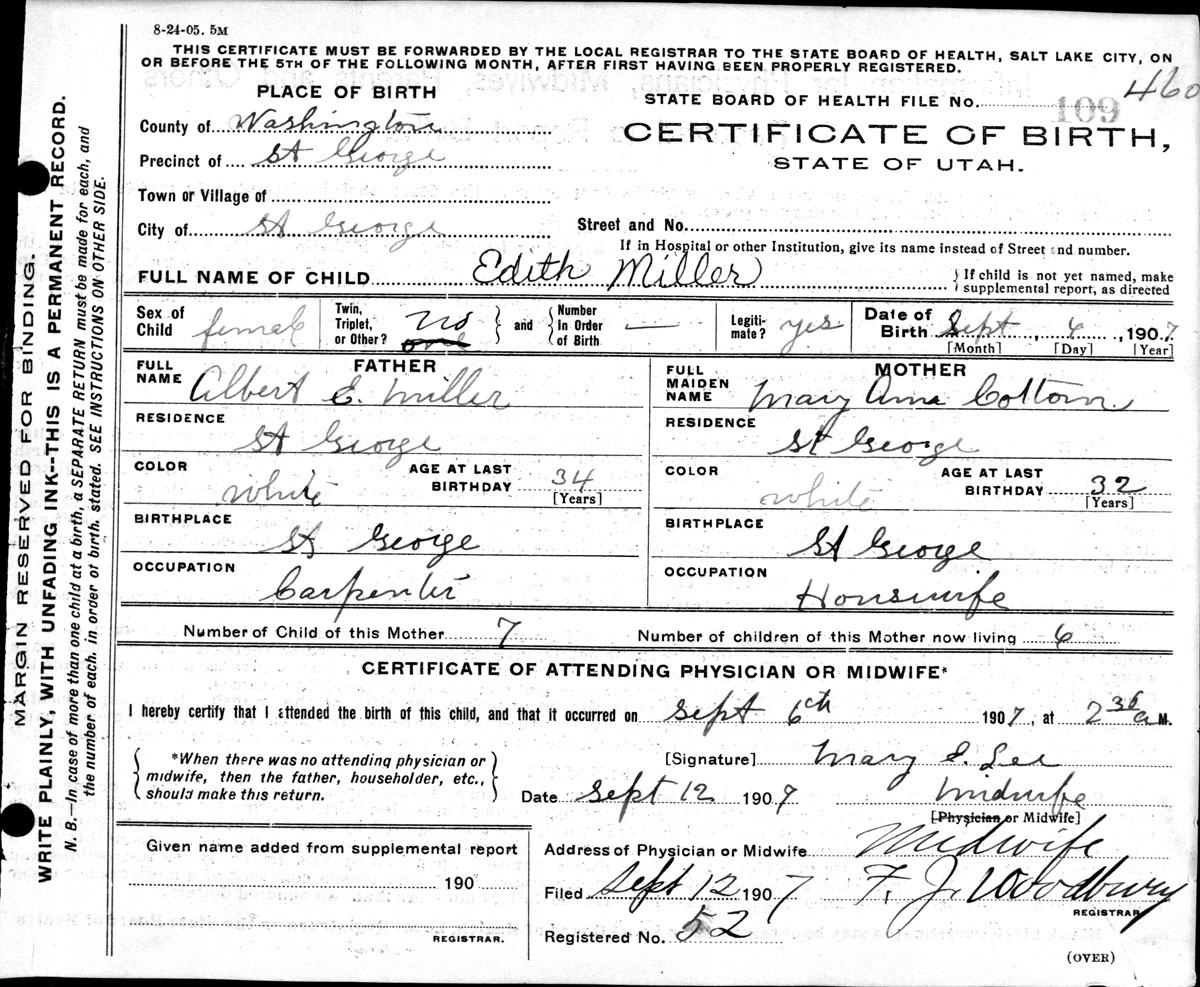 8-24-05. 5M
THIS CERTIFICATE MUST BE FORWARDED BY THE LOCAL REGISTRAR TO THE STATE BOARD OF HEALTH, SALT LAKE CITY, ON
OR BEFORE THE 5TH OF THE FOLLOWING MONTH, AFTER FIRST HAVING BEEN PROPERLY REGISTERED.
460
PLACE OF BIRTH
STATE BOARD OF HEALTH FILE No. 109
County of Washington
CERTIFICATE OF BIRTH,
Precinct of St George
STATE OF UTAH.
Town or Village of
City of St George
Street and No.
If in Hospital or other Institution, give its name instead of Street and number.
FULL NAME OF CHILD Edith Miller
If child is not yet named, make
supplemental report, as directed
Sex of Child female
Twin, Triplet, or Other? No
and
Number In Order of Birth —
Legitimate? yes
Date of Birth Sept 6, 1907
[Month] [Day] [Year]
FATHER
FULL NAME Albert E. Miller
RESIDENCE
St George
COLOR white
AGE AT LAST BIRTHDAY 34
[Years]
BIRTHPLACE
St George
OCCUPATION
Carpenter
MOTHER
FULL MAIDEN NAME Mary Anna Cottom
RESIDENCE
St George
COLOR white
AGE AT LAST BIRTHDAY 32
[Years]
BIRTHPLACE
St George
OCCUPATION
Housewife
Number of Child of this Mother 7
Number of children of this Mother now living 6
CERTIFICATE OF ATTENDING PHYSICIAN OR MIDWIFE*
I hereby certify that I attended the birth of this child, and that it occurred on Sept 6th 1907, at 2 30 a M.
*When there was no attending physician or
midwife, then the father, householder, etc.,
should make this return.
[Signature] Mary E. Lee
Date Sept 12 1907 Midwife
[Physician or Midwife]
Given name added from supplemental report
190
REGISTRAR.
Address of Physician or Midwife Midwife
Filed Sept 12 1907 F. J. Woodbury
REGISTRAR
Registered No. 52
(OVER)
MARGIN RESERVED FOR BINDING.
WRITE PLAINLY, WITH UNFADING INK--THIS IS A PERMANENT RECORD.
N. B.—In case of more than one child at a birth, a SEPARATE RETURN must be made for each, and
the number of each, in order of birth, stated. SEE INSTRUCTIONS ON OTHER SIDE.